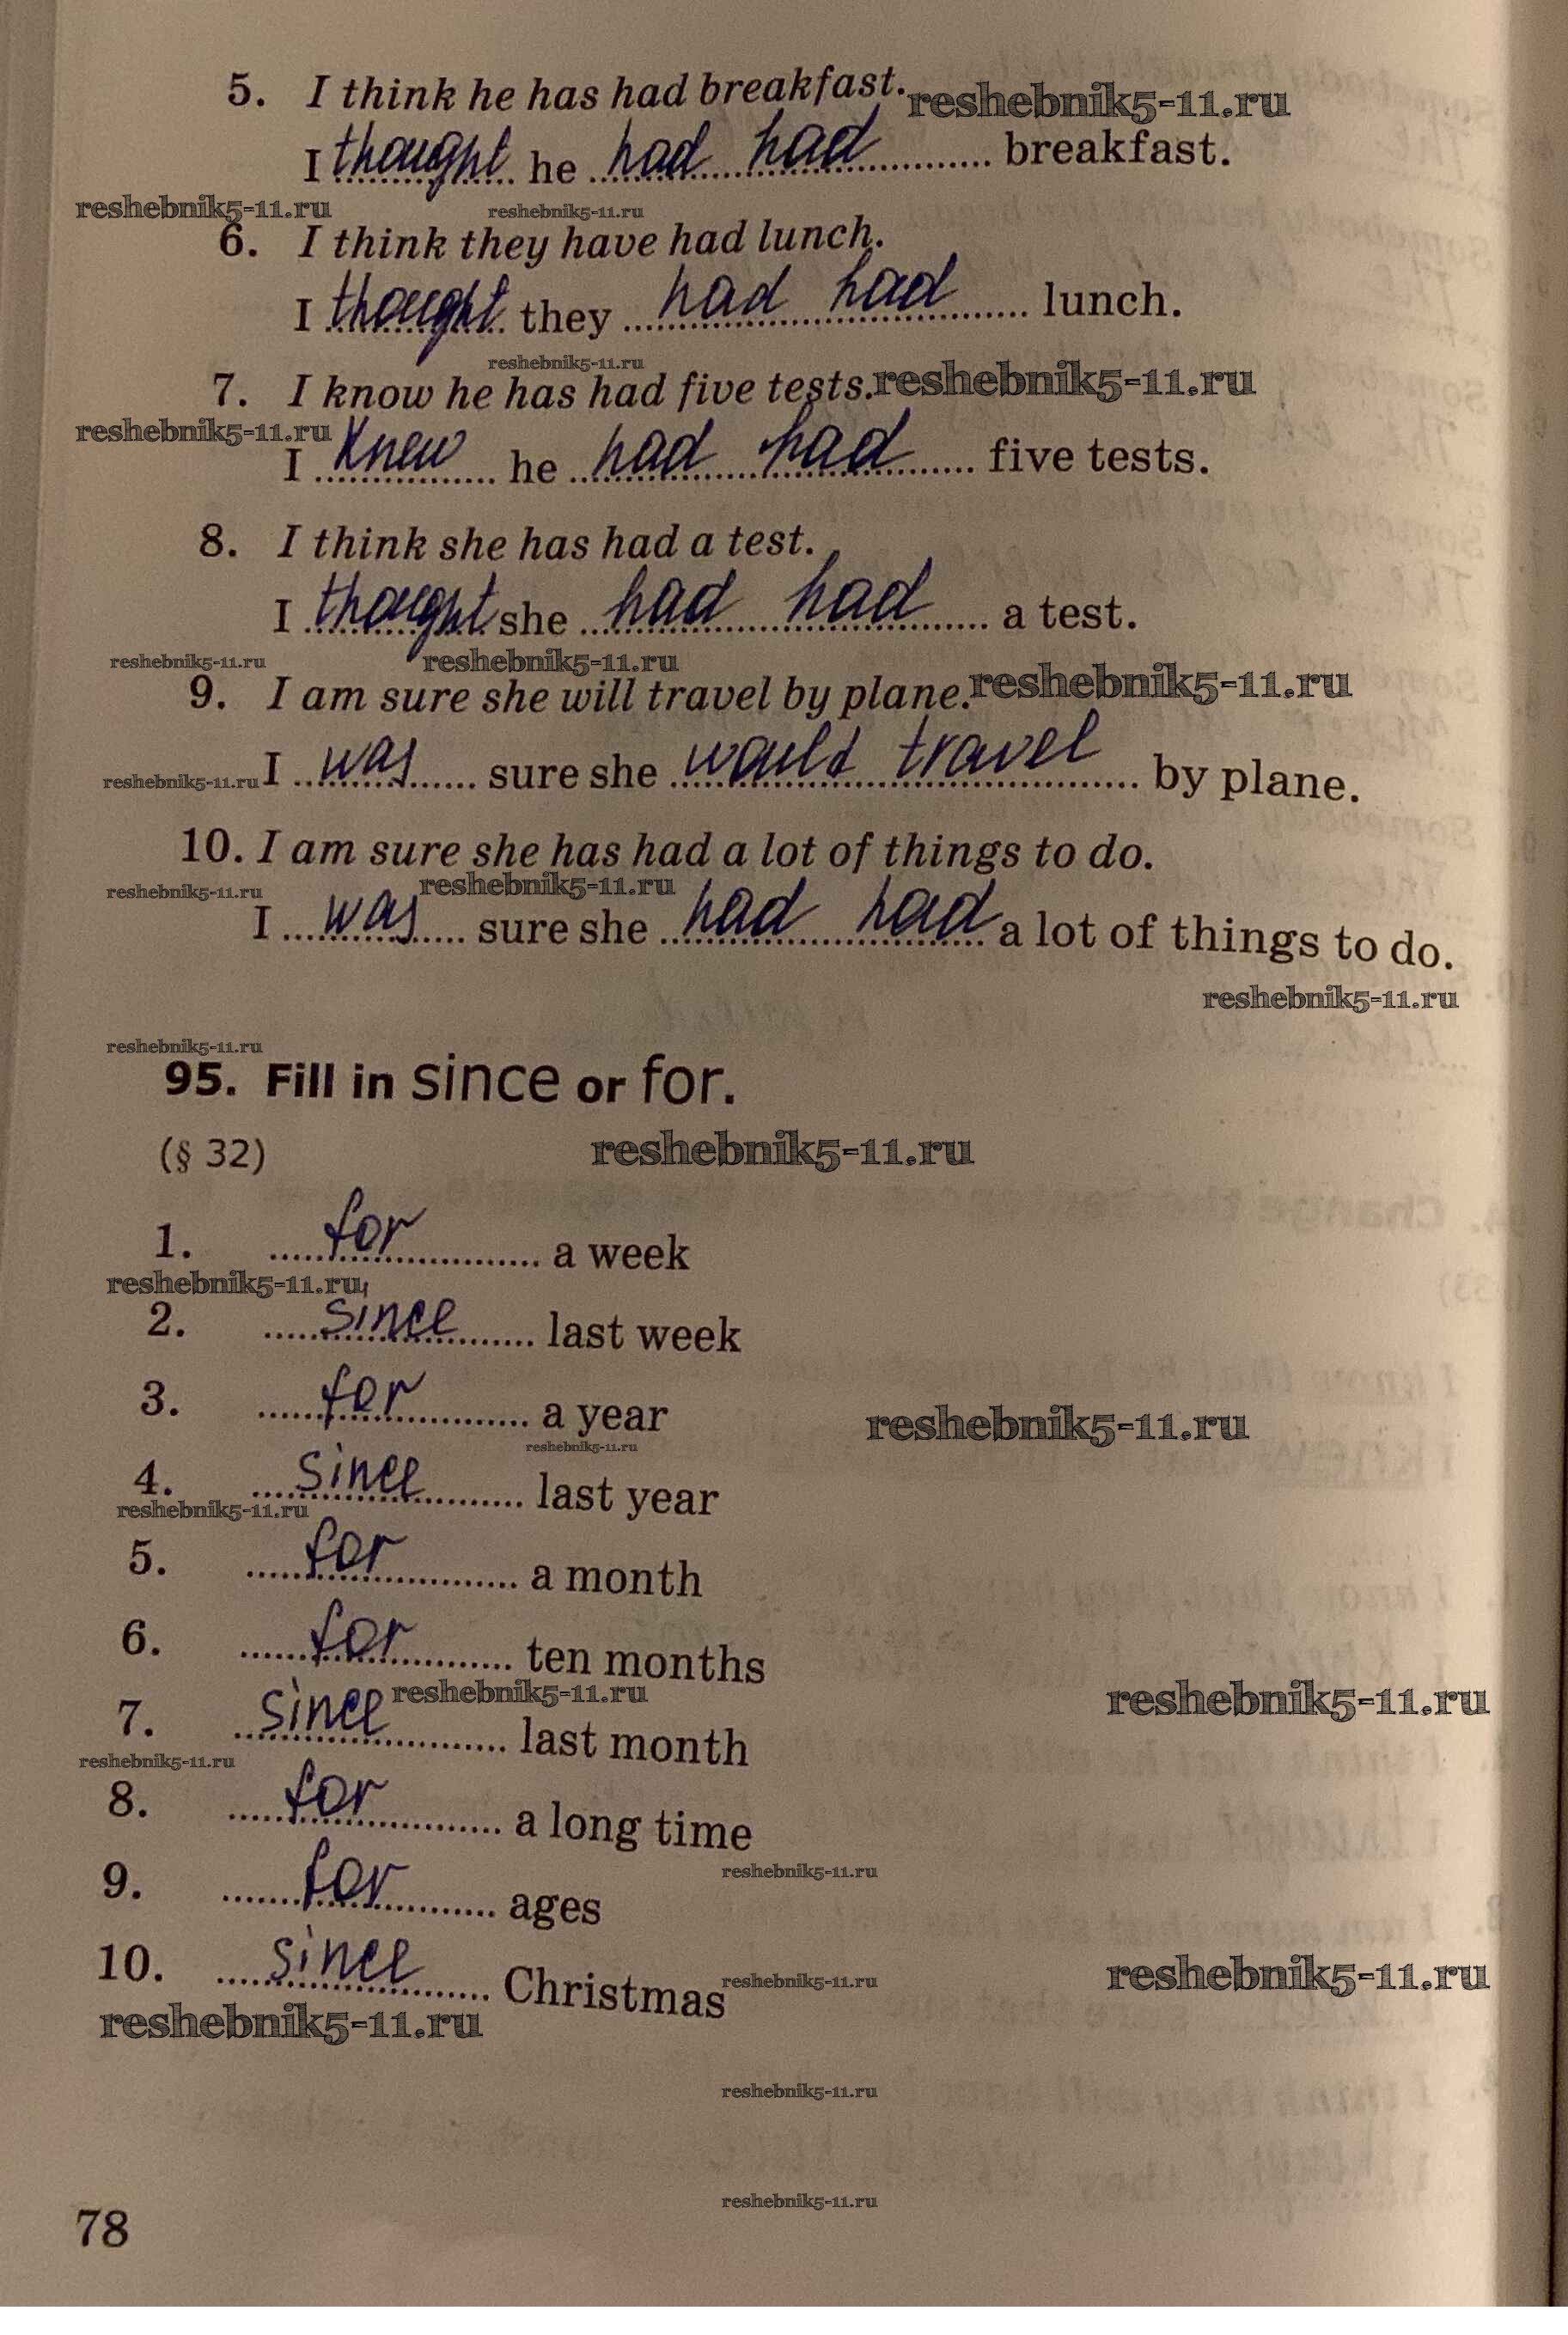 5. I think he has had breakfast. reshebnik5-11.ru
I thought he had had breakfast.
reshebnik5-11.ru reshebnik5-11.ru
6. I think they have had lunch.
I thought they had had lunch.
reshebnik5-11.ru
7. I know he has had five tests. reshebnik5-11.ru
reshebnik5-11.ru
I knew he had had five tests.
8. I think she has had a test.
I thought she had had a test.
reshebnik5-11.ru reshebnik5-11.ru
9. I am sure she will travel by plane. reshebnik5-11.ru
reshebnik5-11.ru I was sure she would travel by plane.
10. I am sure she has had a lot of things to do.
reshebnik5-11.ru reshebnik5-11.ru
I was sure she had had a lot of things to do.
reshebnik5-11.ru
reshebnik5-11.ru
95. Fill in since or for.
(§ 32) reshebnik5-11.ru
1. for a week
reshebnik5-11.ru
2. since last week
3. for a year
reshebnik5-11.ru
reshebnik5-11.ru
4. since last year
reshebnik5-11.ru
5. for a month
6. for ten months
reshebnik5-11.ru reshebnik5-11.ru
7. since last month
reshebnik5-11.ru
8. for a long time
reshebnik5-11.ru
9. for ages
10. since Christmas reshebnik5-11.ru reshebnik5-11.ru
reshebnik5-11.ru
reshebnik5-11.ru
reshebnik5-11.ru
78